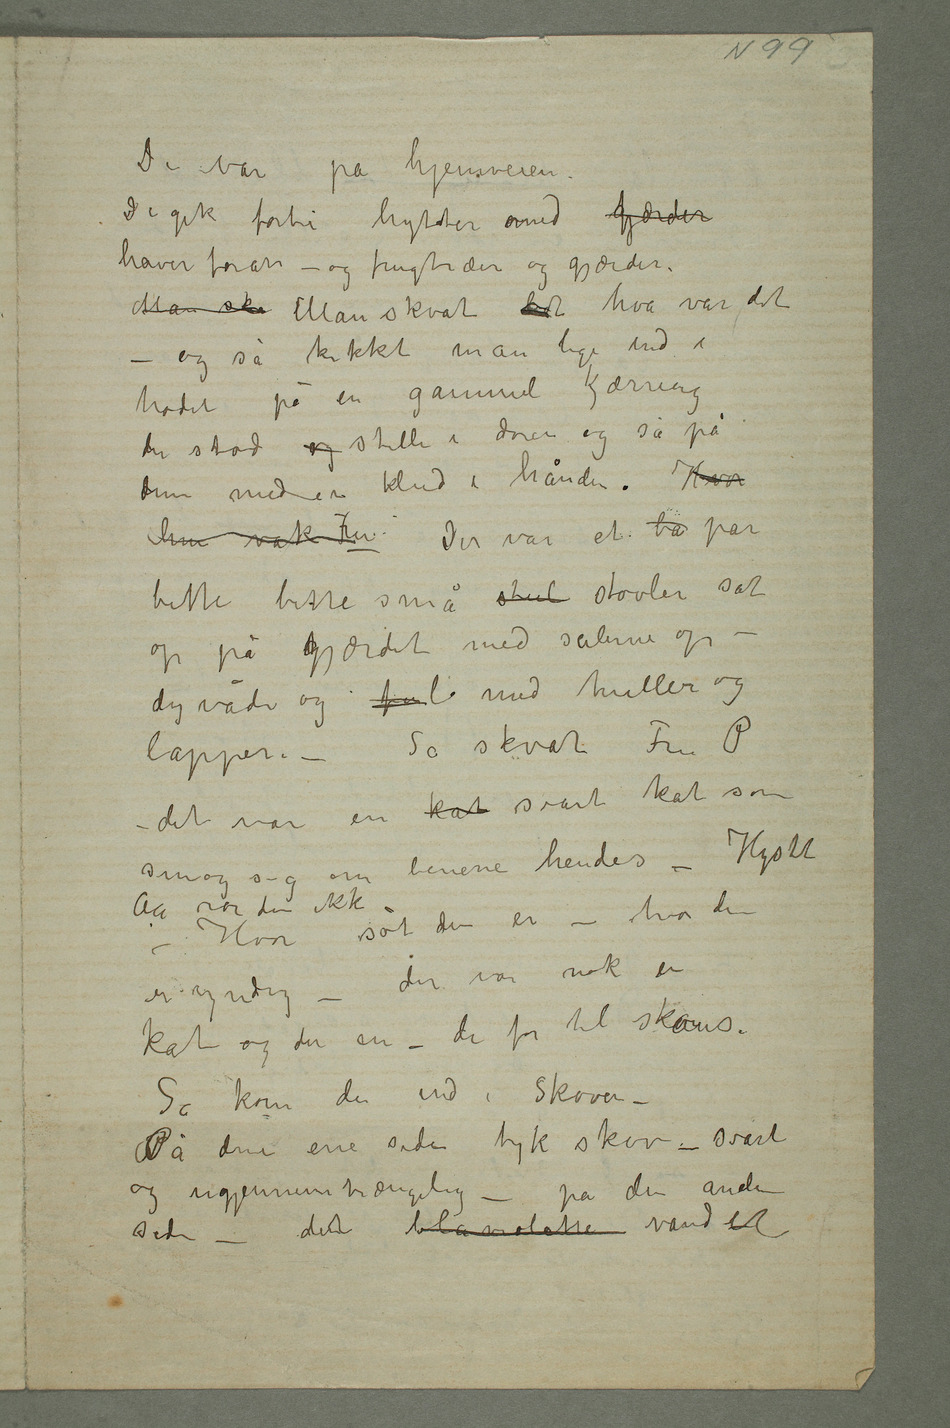 N 99
De var på hjemveien.
De gik forbi hytter med gjærder
haver foran – og frugtræer og gjærder.
Man ska Man skvat lidt hva var det
– og så kikket man lige ind i
hodet på en gammel kjærring
der stod og stille i døren og så på
dem med en klud i hånden. Hvor
hun vak Fru Der var et ba par
bitte bitte små støvler sat
op på gjærdet med sålerne op –
dyvåde og ful med huller og
lapper. – Så skvat Fru P
– det var en kat svart kat som
smog sig om benene hendes – Hystt
Aa rør den ikk
– Hvor søt den er – hvor den
er yndig – der var nok en
kat og der en – de for til skovs.
Så kom de ind i Skoven –
På den ene siden tyk skov – svart
og ugjennemtrængelig – på den anden
side – det blaviolette vandet